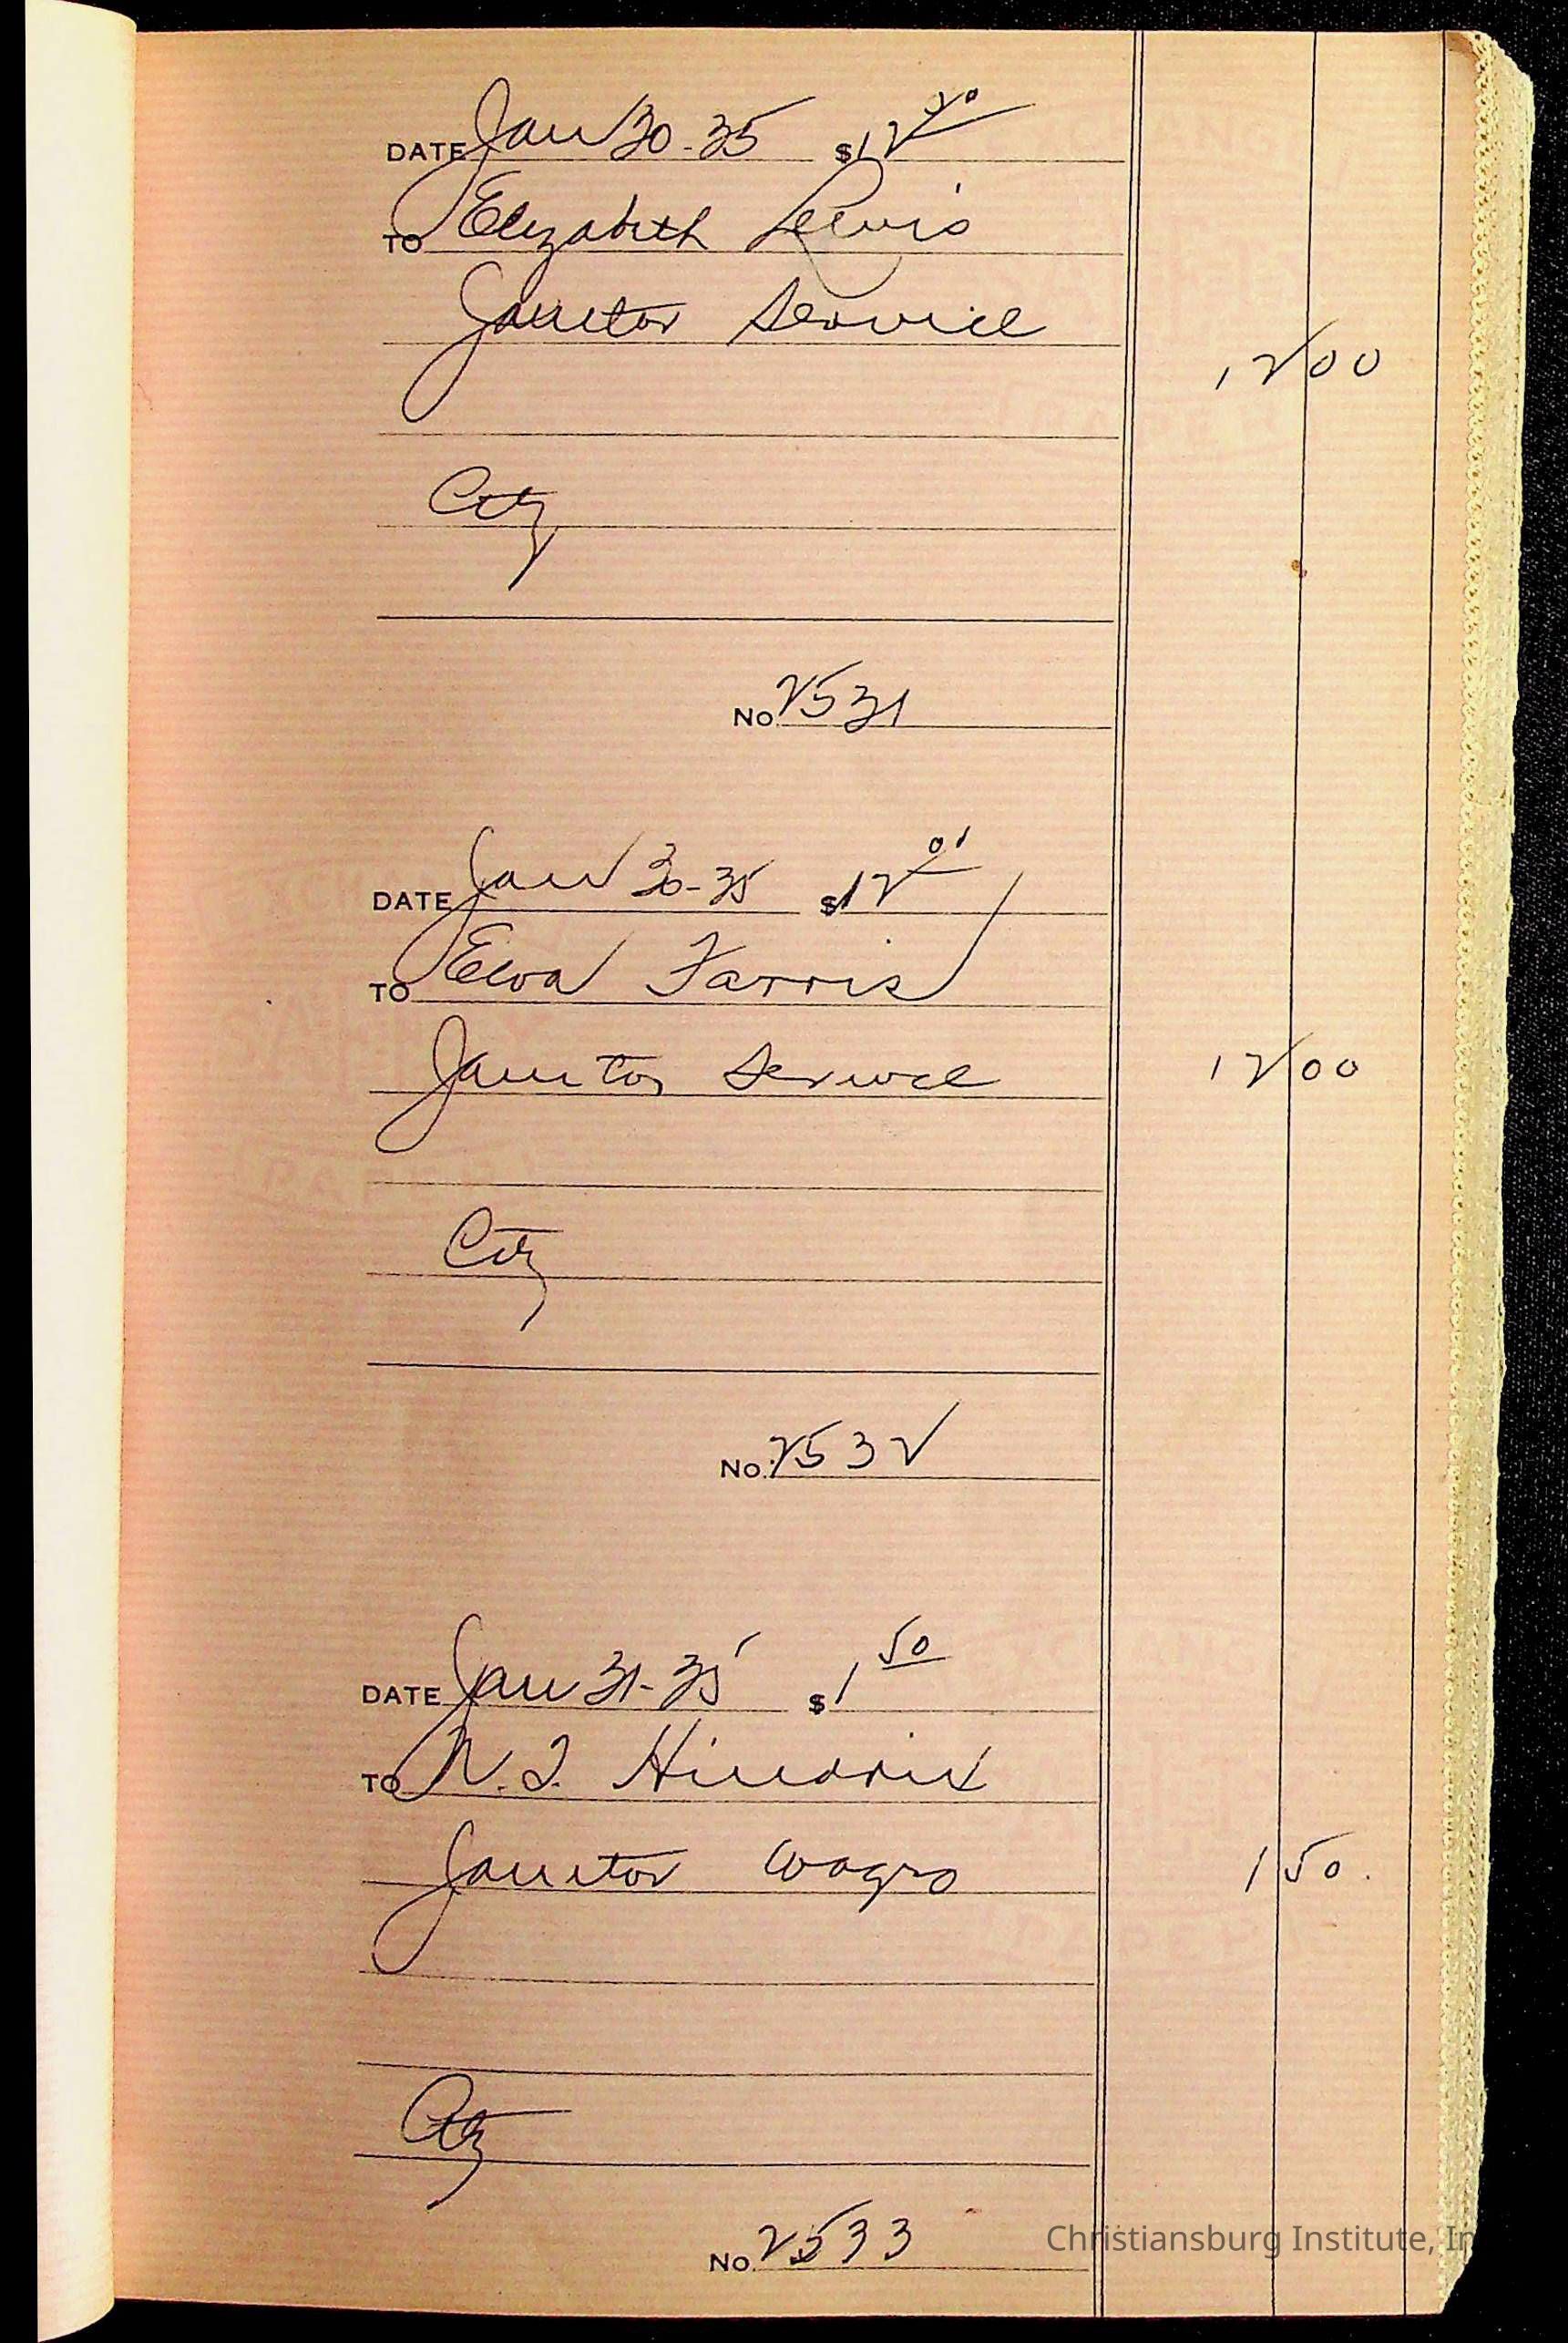 DATE Jan 30-35 $12 00
TO Elizabeth Lewis
Janitor Service
12 00
City
No. 2531
DATE Jan 30-35 $12 00
TO Elva Farris
Janitor Service 12 00
City
No. 2532
DATE Jan 31-35 $1 50
TO N. T. Hendrix
Janitor Wages 1 50.
City
No. 2533
Christiansburg Institute, In